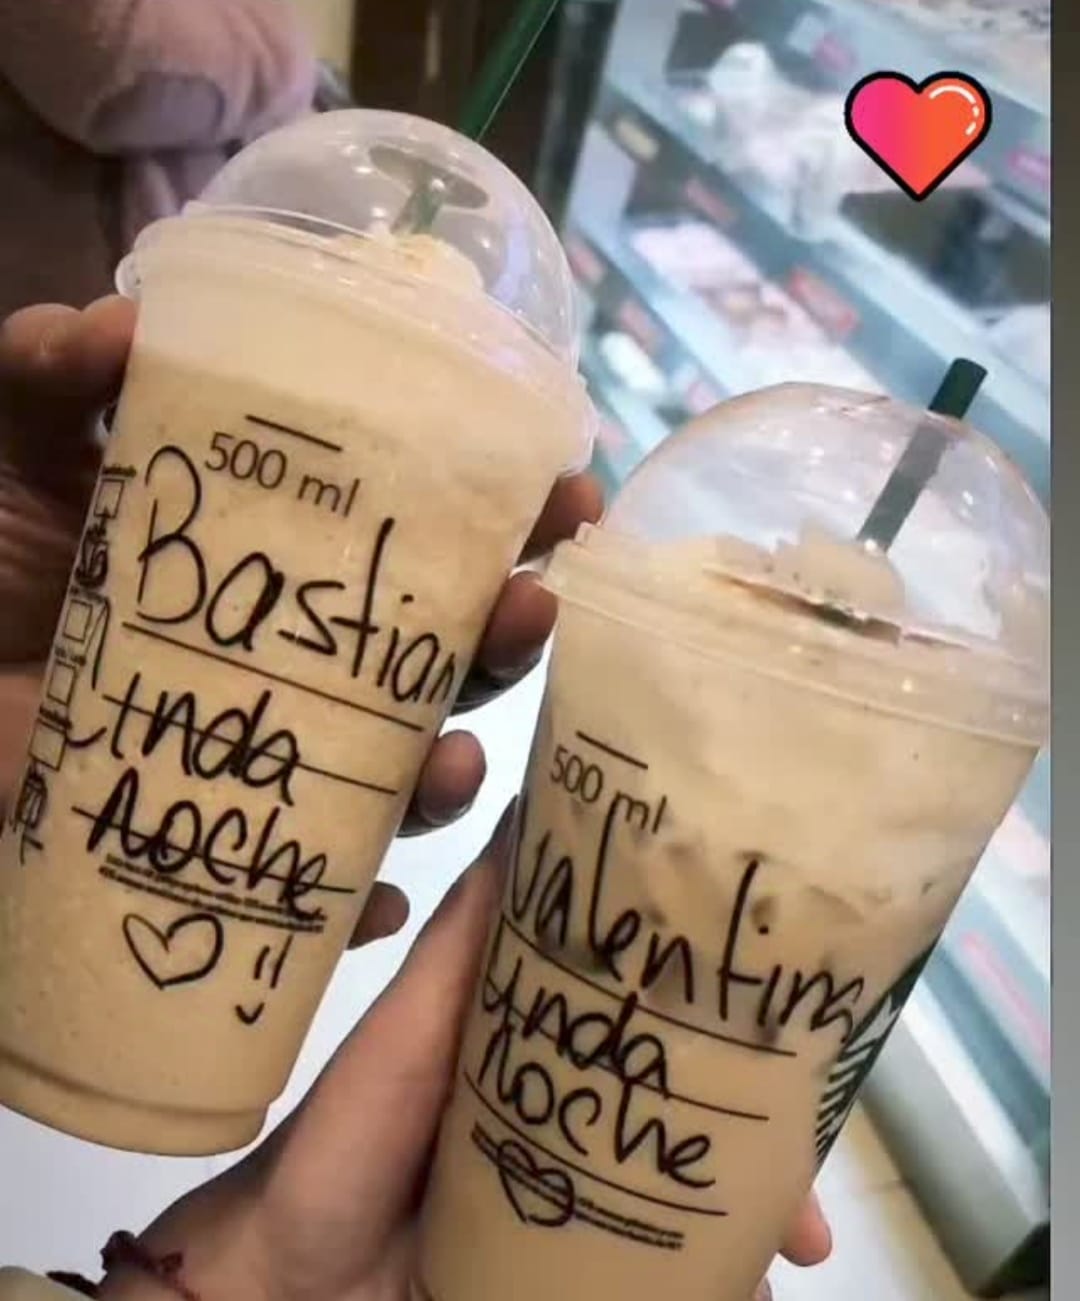 500 ml
Bastian
Linda
Noche
500 ml
Valentina
Linda
Noche